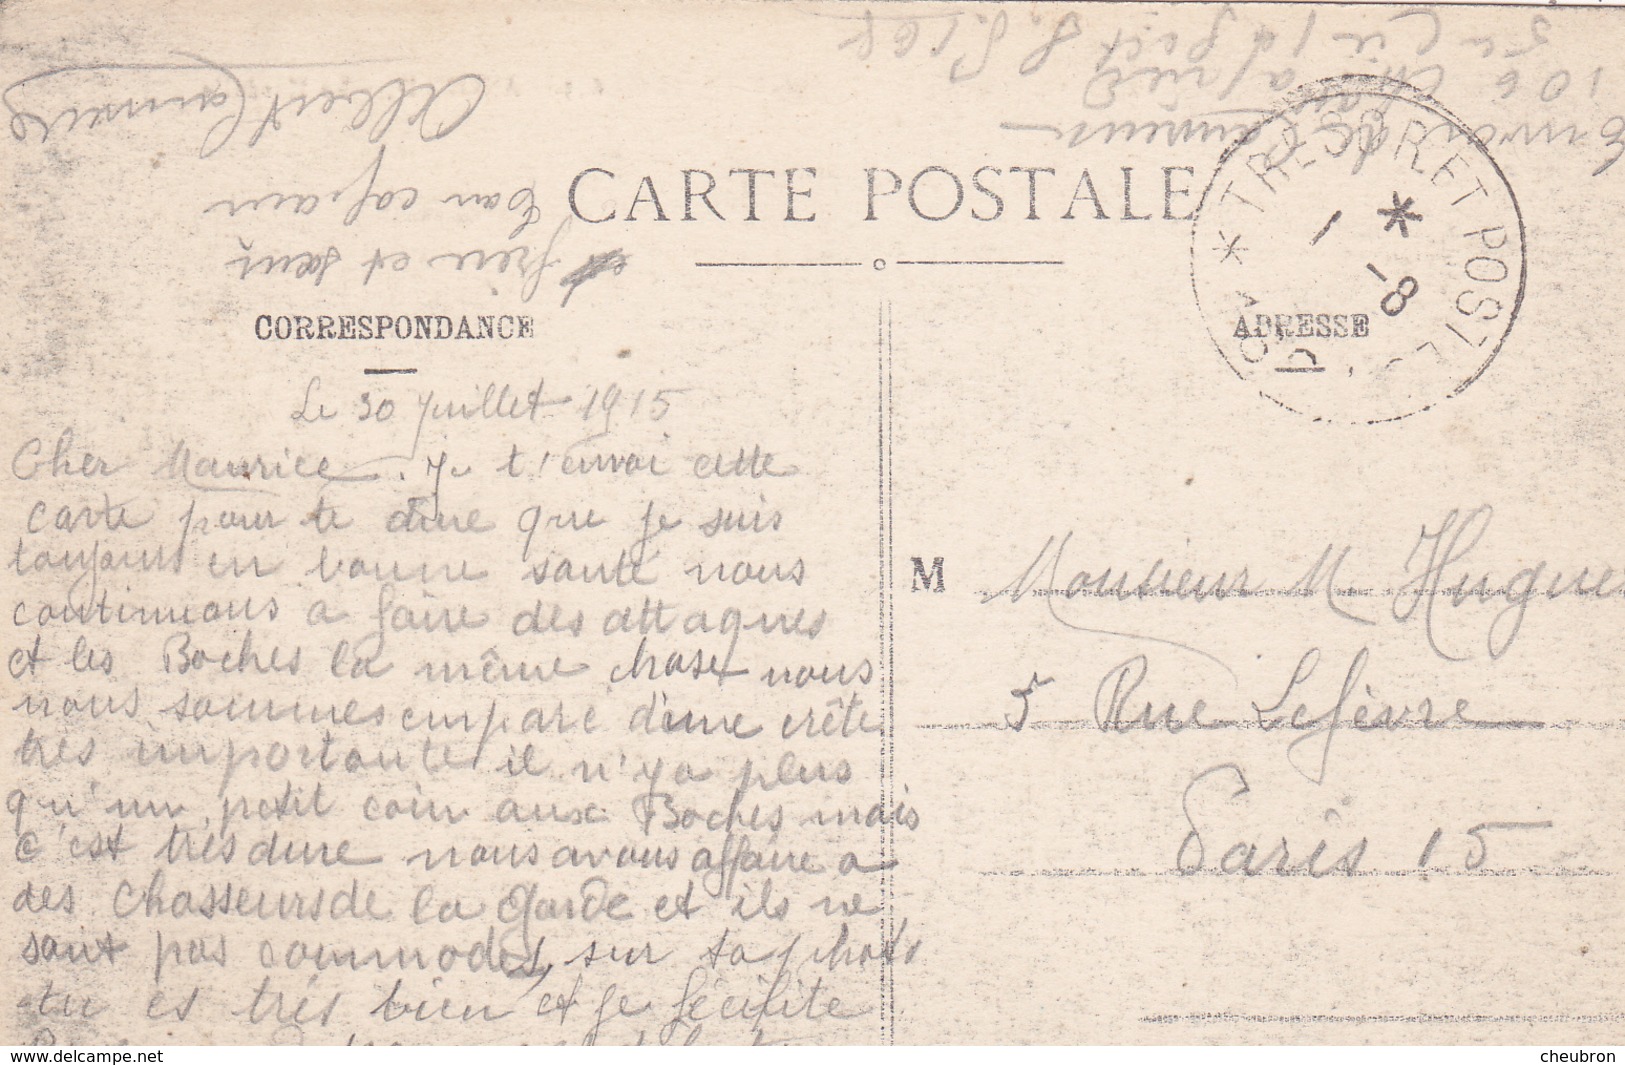 CARTE POSTALE
CORRESPONDANCE
ADRESSE
TRESOR ET POSTES
1
8-
Le 30 Juillet 1915
Cher Maurice. Je t'envoi cette
carte pour te dire que je suis
toujours en bonne santé nous
continuons a faire des attaques
et les Boches la même chose nous
nous sommes emparé d'une crête
très importante il n'y a plus
qu'un petit coin aux Boches mais
c'est très dure nous avons affaire a
des Chasseurs de la Garde et ils ne
sont pas commodes, sur ta photo
tu es très bien et je fécilite
frère et sœur
Ton copain
Albert Canneris
Envoi de
106 Chas a pied
5e Cie
M Monsieur M. Hugue
5 Rue Lefèvre
Paris 15
www.delcampe.net
cheubron